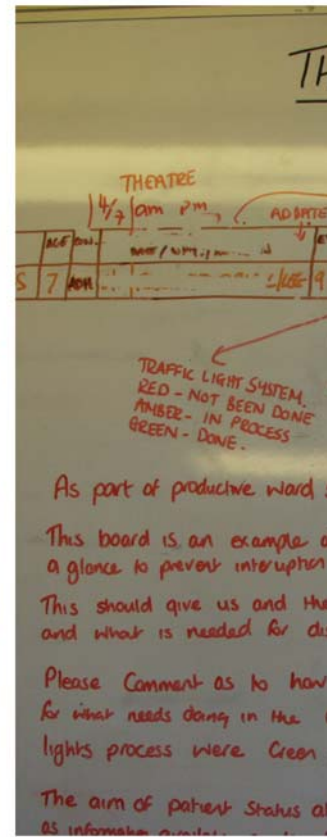 TH
THEATRE
4/7 am pm
AD DATE
AGE CON.
S 7 ADM L/LEG 9
TRAFFIC LIGHT SYSTEM.
RED - NOT BEEN DONE
AMBER - IN PROCESS
GREEN - DONE.
As part of productive ward
This board is an example
a glance to prevent interuption
This should give us and the
and what is needed for dis
Please Comment as to how
for what needs doing in the
lights process were Green
The aim of patient status a
as